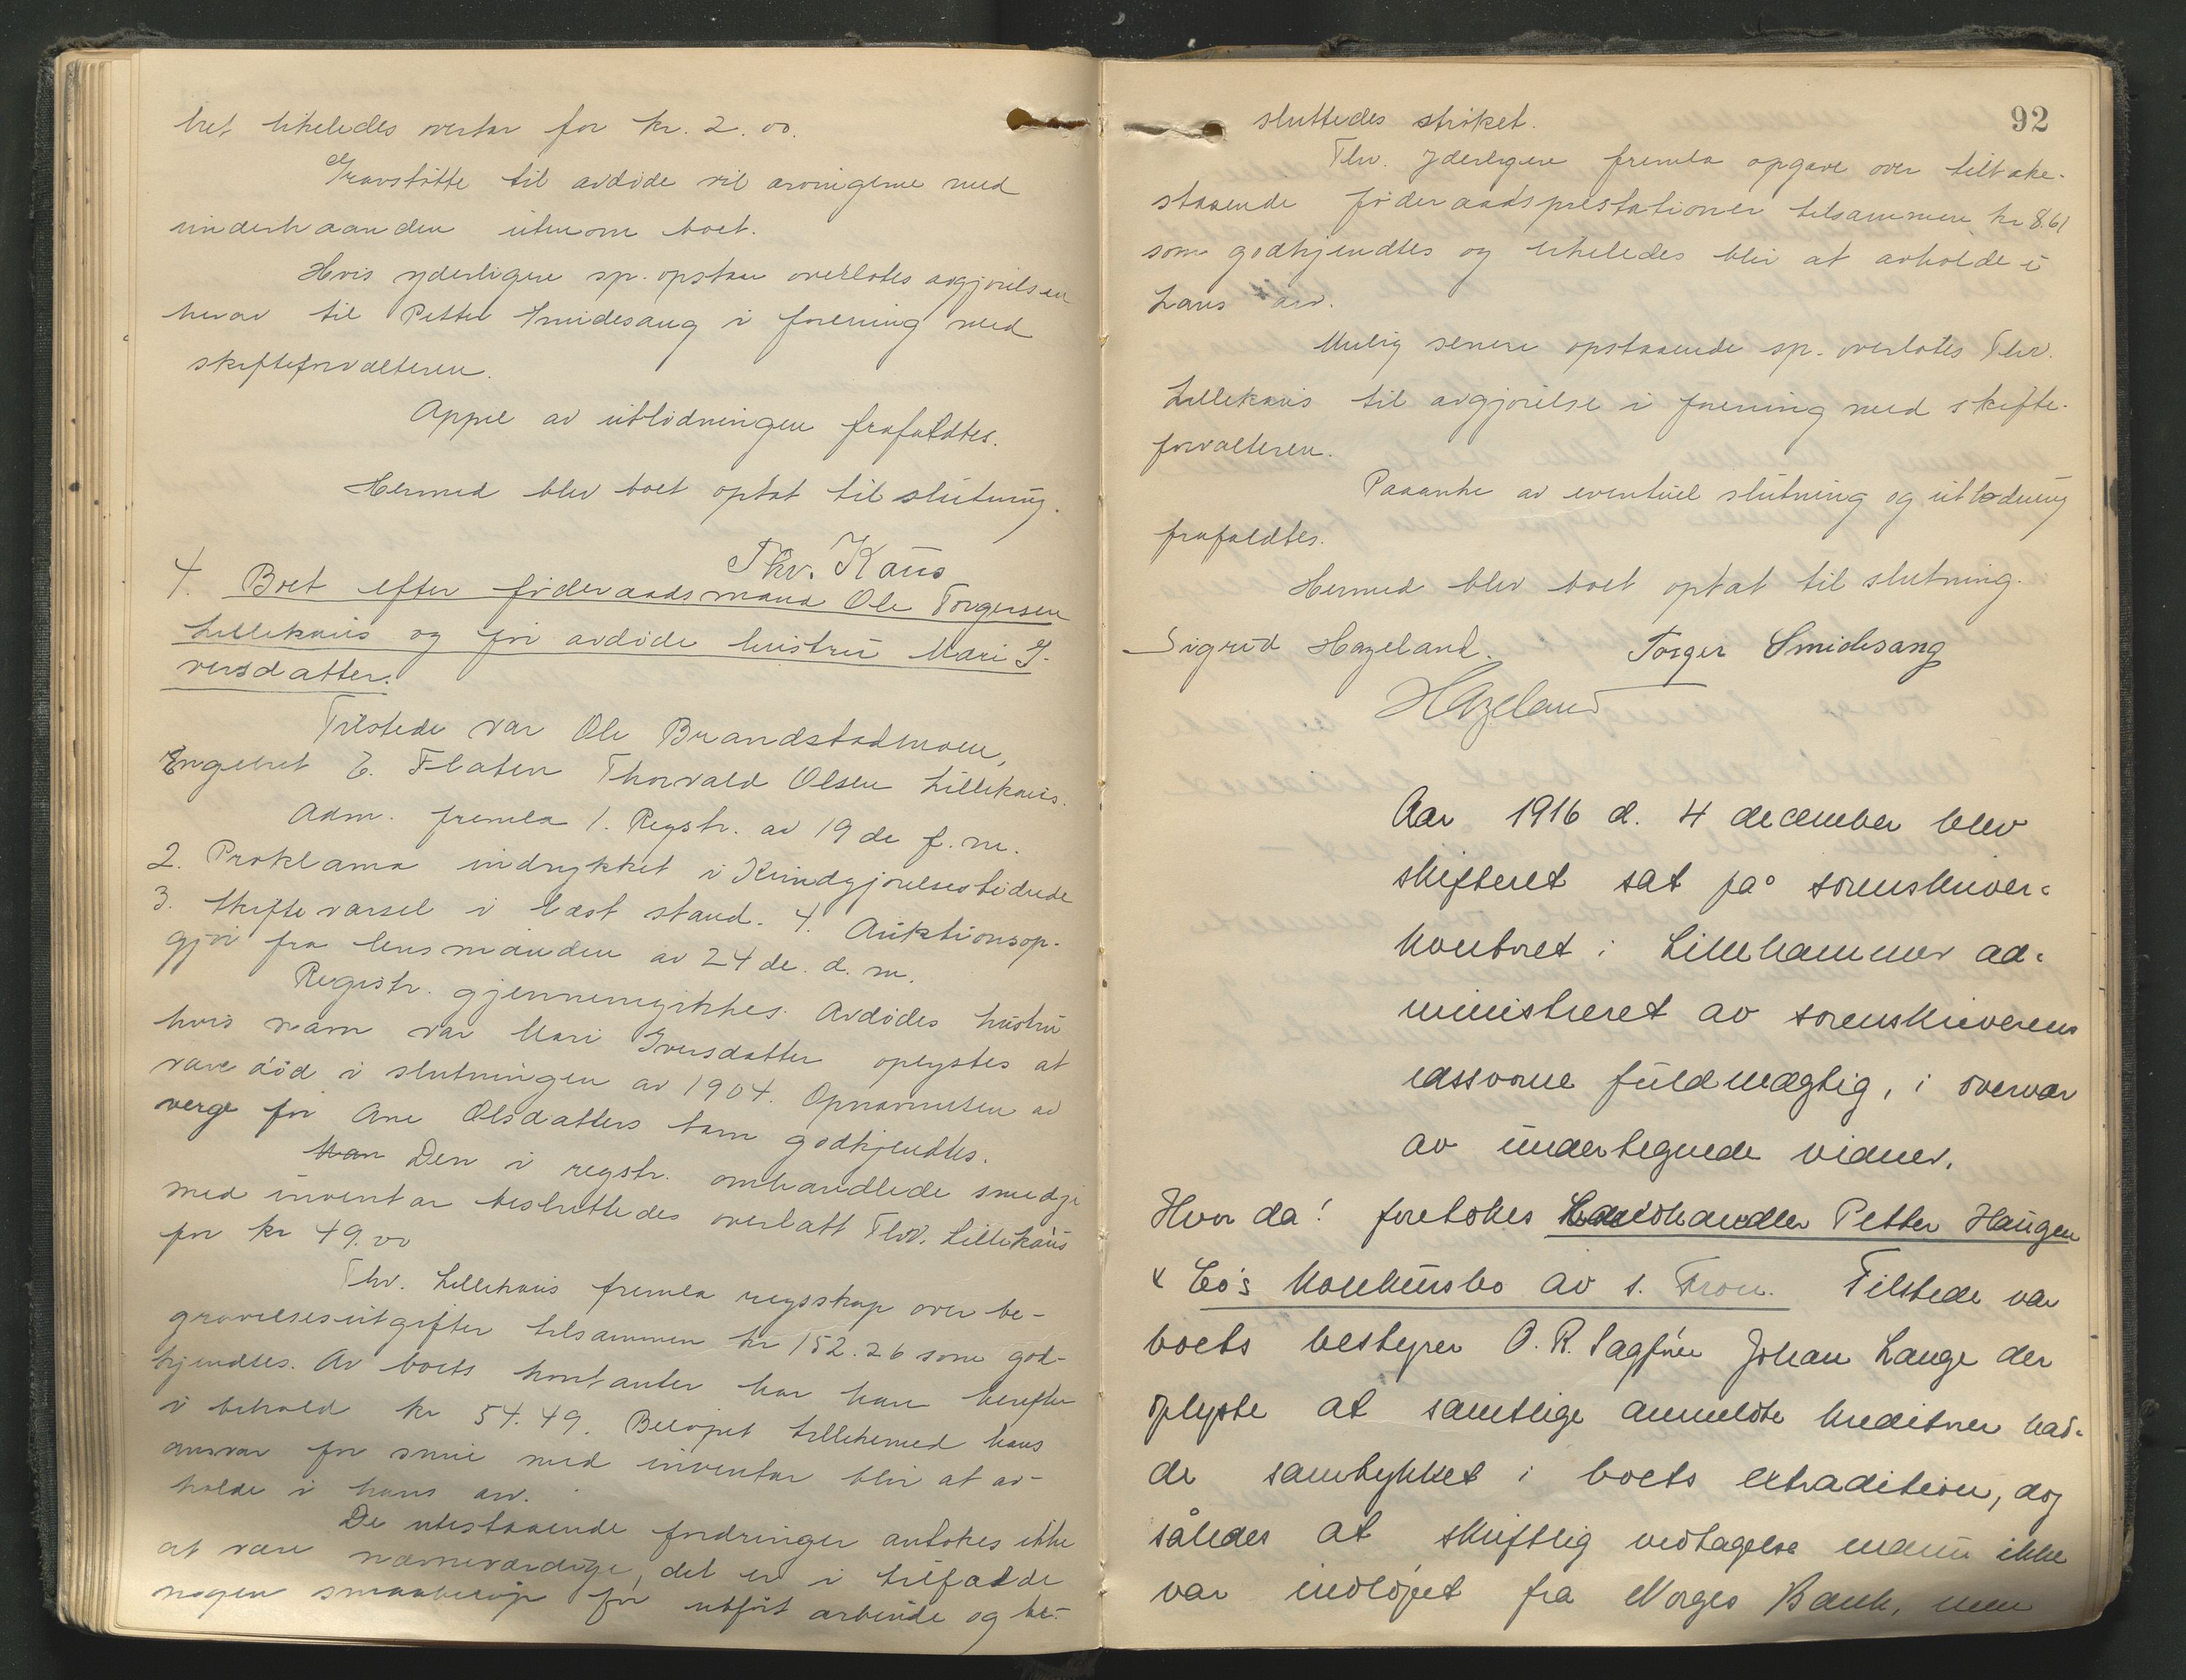 likeledes overtar for kr. 2.00.
Gravstøtte til avdøde vil arvingerne med
underhaanden utenom boet.
Hvis yderligere sp. opstaar overlotes avgjørelsen
herav til Petter Smidesang i forening med
skifteforvalteren.
Appel av utlodningen frafaldtes.
Hermed blev boet optat til slutning.
Thv. Kaus
4. Boet efter føderaadsmand Ole Torgersen
Lillekaus og før avdøde hustru Mari I-
versdatter.
Tilstede var Ole Brandstadmoen,
Engebret E. Flaten Thorvald Olsen Lillekaus.
Adm. fremla 1. Regstr. av 19de f. m.
2. Proklama indrykket i Kundgjørelsestidende
3. Skiftevarsel i læst stand. 4. Auktionsop-
gjør fra lensmanden av 24de. d. m.
Registr. gjennemgikkes. Avdødes hustru
hvis navn var Mari Iversdatter oplystes at
være død i slutningen av 1904. Opnævnelsen av
verge for Ane Olsdatters barn godkjendtes.
Den i regstr. omhandlede smedje
med inventar besluttedes overlatt Thv. Lillekaus
for kr 49.00
Thv. Lillekaus fremla regnskap over be-
gravelsesutgifter tilsammen kr 152.26 som god-
kjendtes. Av boets kontanter har han herefter
i behold kr 54.49. Beløpet tillikemed hans
ansvar for smie med inventar blir at av-
holde i hans arv.
De utestaaende fordringer antokes ikke
at være nævneværdige, det er i tilfælde
nogen smaabeløp for utført arbeide og be-
92
sluttedes strøket.
Thv. yderligere fremla opgave over tilbake-
staaende føderaadsprestationer tilsammen kr 8.61
som godkjendtes og likeledes blir at avholde i
hans arv.
Mulig senere opstaaende sp. overlotes Thv.
Lillekaus til avgjørelse i forening med skifte-
forvalteren.
Paaanke av eventuel slutning og utlodning
frafaldtes.
Hermed blev boet optat til slutning.
Sigrid Hazeland. Torger Smidesang
Hazeland
Aar 1916 d. 4 december blev
skifteret sat på sorenskriver-
kontoret i Lillehammer ad-
ministreret av sorenskriverens
edssvorne fuldmægtig, i overvær
av undertegnede vidner.
Hvor da! foretokes Landhandler Petter Haugen
& Co's konkursbo av s. Fron. Tilstede var
boets bestyrer O. R. Sagfører Johan Lange der
oplyste at samtlige anmeldte kreditorer had-
de samtykket i boets extradition, dog
således at skriftlig vedtagelse endnu ikke
var indløpet fra Norges Bank, men